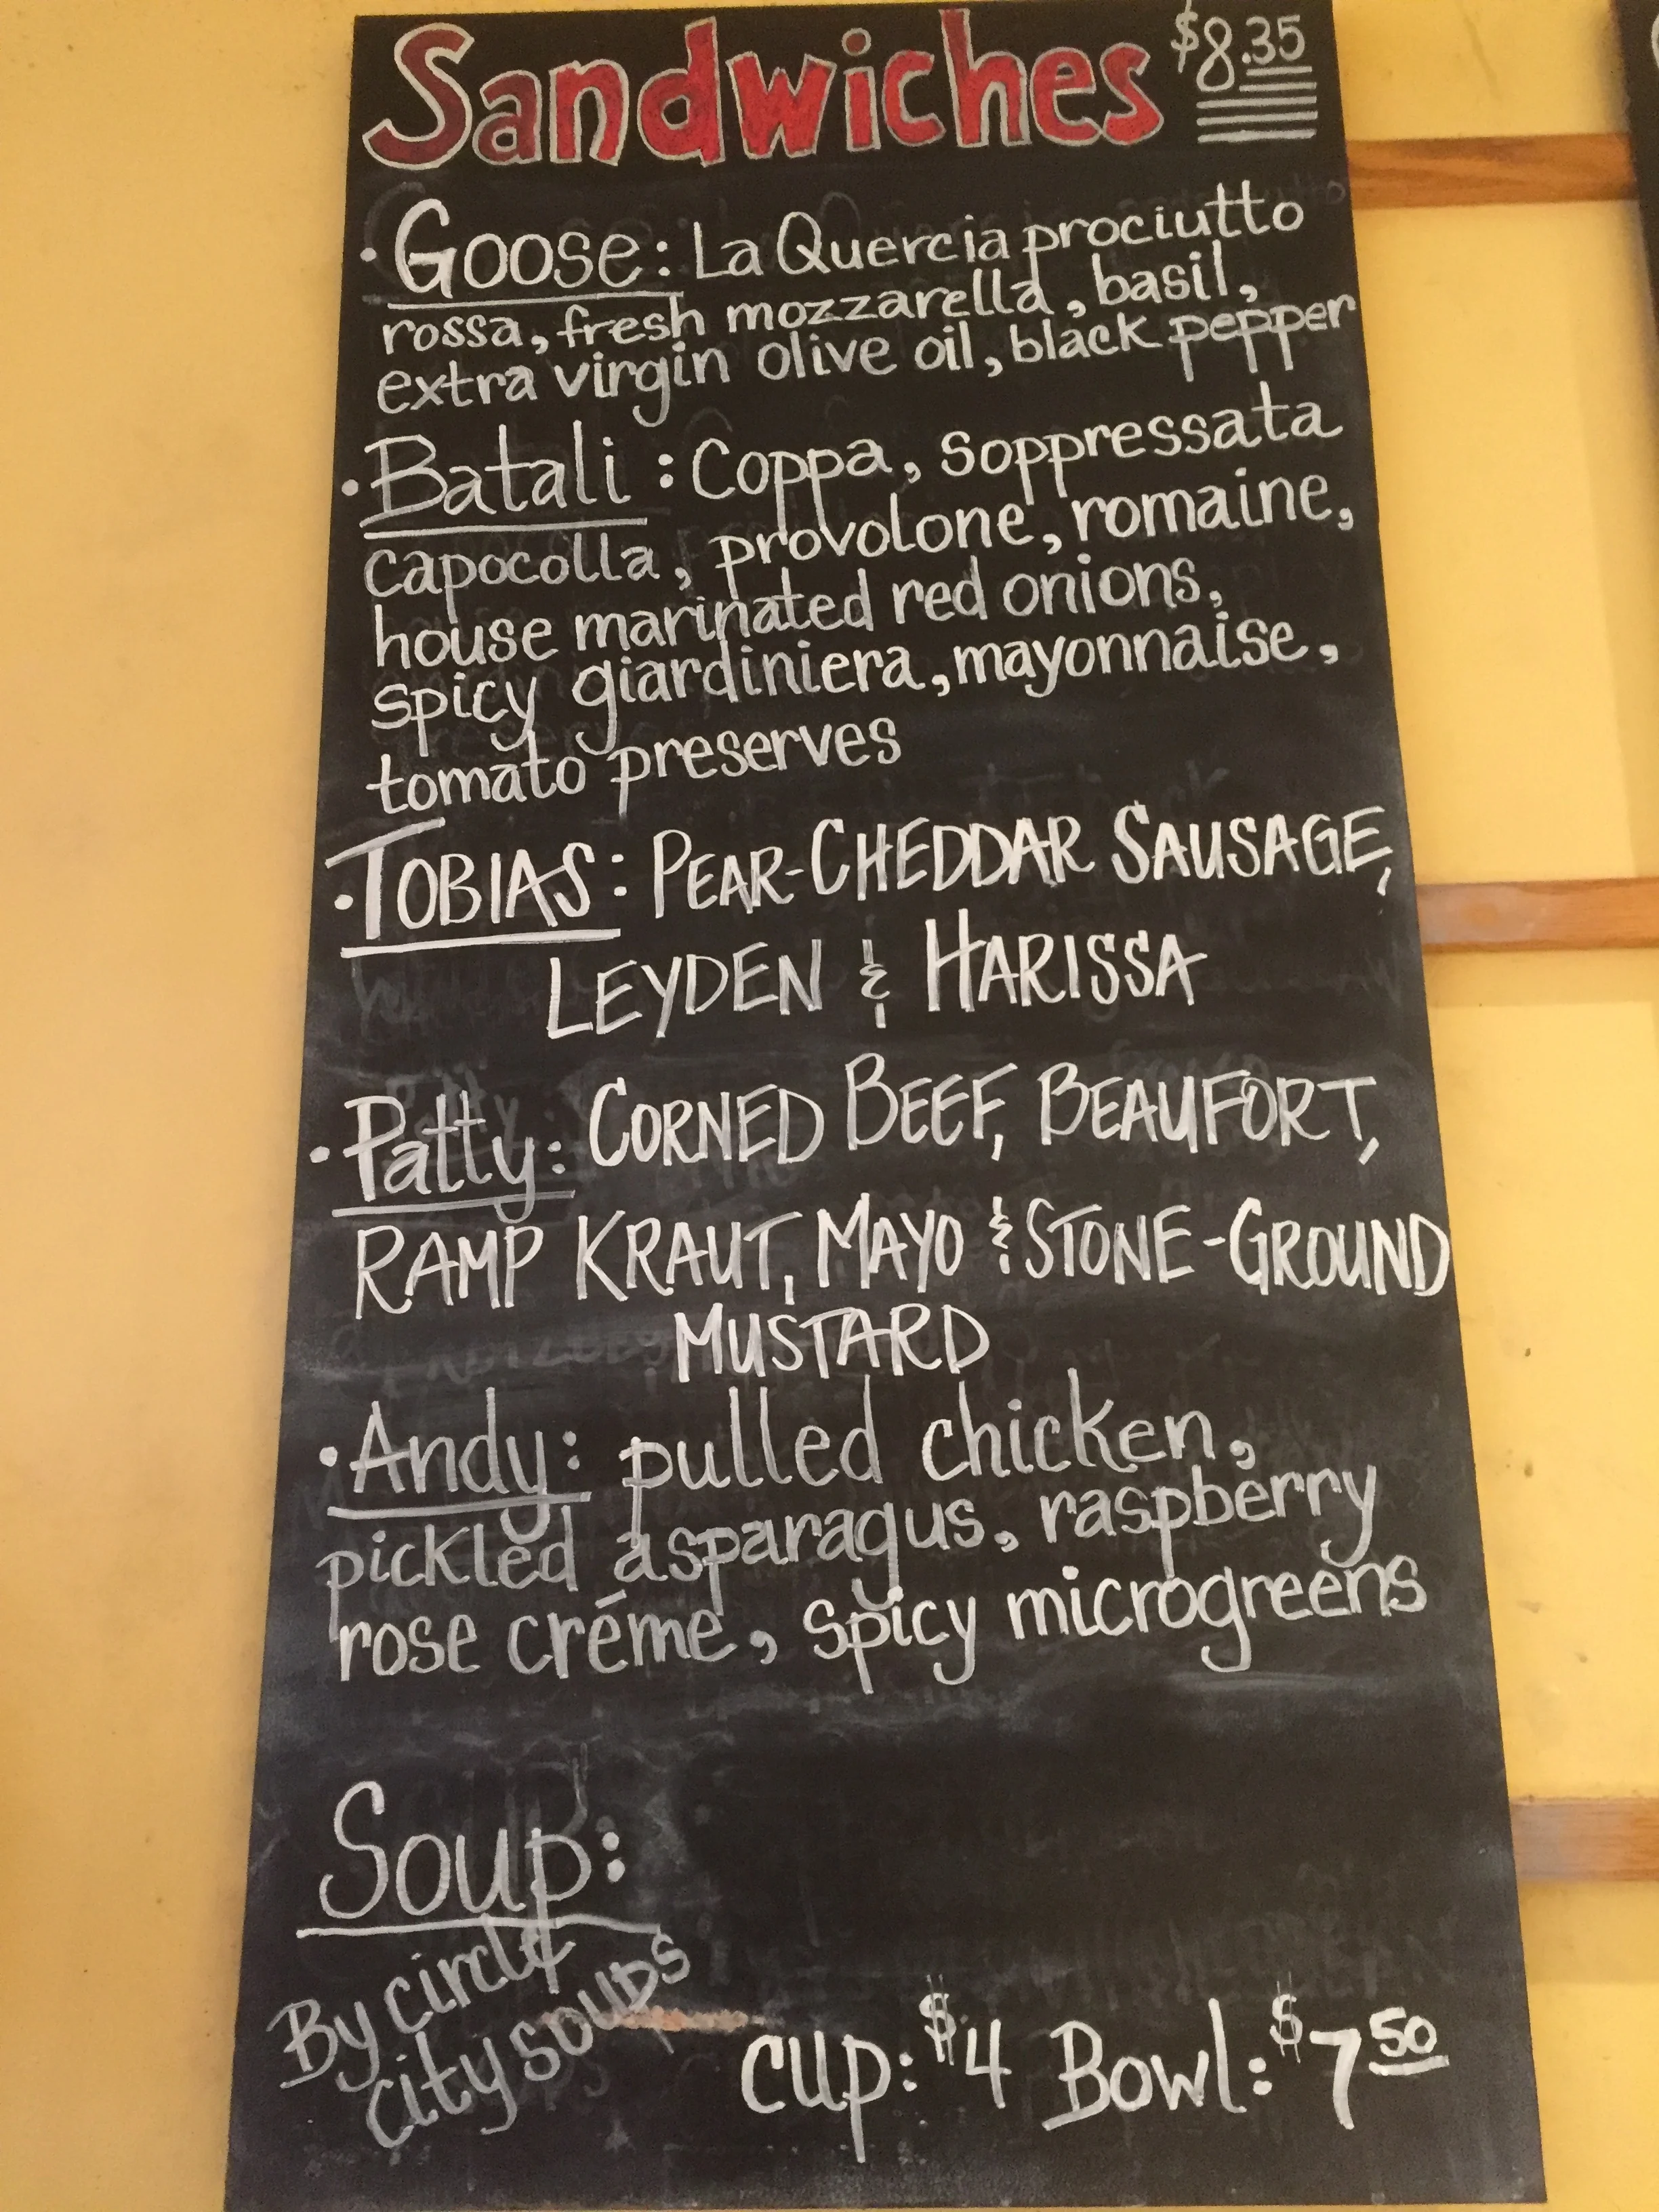 Sandwiches $8.35
• Goose: La Quercia prociutto
rossa, fresh mozzarella, basil,
extra virgin olive oil, black pepper
• Batali: Coppa, soppressata
capocolla, provolone, romaine,
house marinated red onions,
spicy giardiniera, mayonnaise,
tomato preserves
• TOBIAS: PEAR-CHEDDAR SAUSAGE,
LEYDEN & HARISSA
• Patty: CORNED BEEF, BEAUFORT,
RAMP KRAUT, MAYO & STONE-GROUND
MUSTARD
• Andy: pulled chicken,
pickled asparagus, raspberry
rose créme, spicy microgreens
Soup:
By circle
city soups
cup: $4 Bowl: $7 50